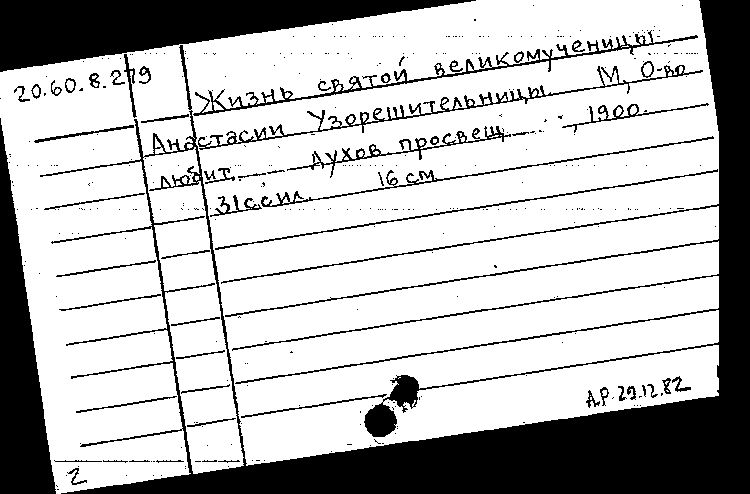 20.60.8.279
Жизнь святой великомученицы
Анастасии Узорешительницы. М, О-во
любит. духов просвещ., 1900.
31с с ил. 16 см
А.Р. 29.12.82
2